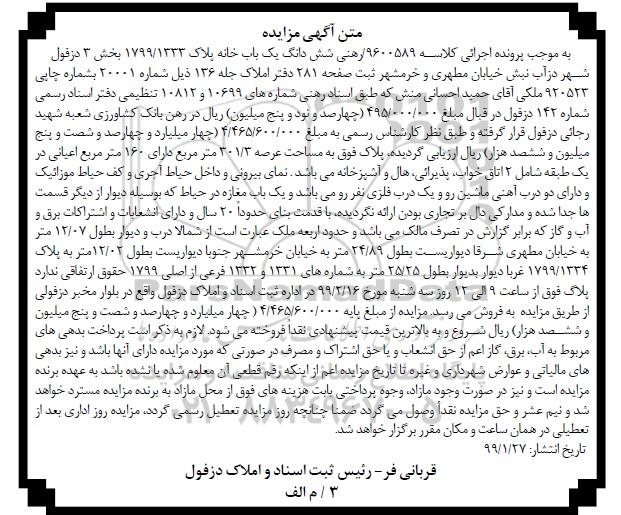 متن آگهی مزایده
به موجب پرونده اجرائی کلاسه ۹۶۰۰۵۸۹/رهنی شش دانگ یک باب خانه پلاک ۱۷۹۹/۱۳۳۳ بخش ۳ دزفول
شهر دزآب نبش خیابان مطهری و خرمشهر ثبت صفحه ۲۸۱ دفتر املاک جله ۱۳۶ ذیل شماره ۲۰۰۰۱ بشماره چاپی
۹۲۰۵۲۳ ملکی آقای حمید احسانی منش که طبق اسناد رهنی شماره های ۱۰۶۹۹ و ۱۰۸۱۲ تنظیمی دفتر اسناد رسمی
شماره ۱۴۲ دزفول در قبال مبلغ ۴۹۵/۰۰۰/۰۰۰ (چهارصد و نود و پنج میلیون) ریال در رهن بانک کشاورزی شعبه شهید
رجائی دزفول قرار گرفته و طبق نظر کارشناس رسمی به مبلغ ۴/۴۶۵/۶۰۰/۰۰۰ (چهار میلیارد و چهارصد و شصت و پنج
میلیون و ششصد هزار) ریال ارزیابی گردیده، پلاک فوق به مساحت عرصه ۳۰۱/۳ متر مربع دارای ۱۶۰ متر مربع اعیانی در
یک طبقه شامل ۲ اتاق خواب، پذیرائی، هال و آشپزخانه می باشد. نمای بیرونی و داخل حیاط آجری و کف حیاط موزائیک
و دارای دو درب آهنی ماشین رو و یک درب فلزی نفر رو می باشد و یک باب مغازه در حیاط که بوسیله دیوار از دیگر قسمت
ها جدا شده و مدارکی دال بر تجاری بودن ارائه نگردیده، با قدمت بنای حدوداً ۲۰ سال و دارای انشعابات و اشتراکات برق و
آب و گاز که برابر گزارش در تصرف مالک می باشد و حدود اربعه ملک عبارت است از شمالا درب و دیوار بطول ۱۲/۰۷ متر
به خیابان مطهری شرقا دیواریست بطول ۲۴/۸۹ متر به خیابان خرمشهر جنوبا دیواریست بطول ۱۲/۰۲متر به پلاک
۱۷۹۹/۱۳۳۴ غربا دیوار بدیوار بطول ۲۵/۲۵ متر به شماره های ۱۳۳۱ و ۱۳۳۲ فرعی از اصلی ۱۷۹۹ حقوق ارتفاقی ندارد
پلاک فوق از ساعت ۹ الی ۱۲ روز سه شنبه مورخ ۹۹/۲/۱۶ در اداره ثبت اسناد و املاک دزفول واقع در بلوار مخبر دزفولی
از طریق مزایده به فروش می رسد. مزایده از مبلغ پایه ۴/۴۶۵/۶۰۰/۰۰۰ ( چهار میلیارد و چهارصد و شصت و پنج میلیون
و ششصد هزار) ریال شروع و به بالاترین قیمت پیشنهادی نقداً فروخته می شود. لازم به ذکر است پرداخت بدهی های
مربوط به آب، برق، گاز اعم از حق انشعاب و یا حق اشتراک و مصرف در صورتی که مورد مزایده دارای آنها باشد و نیز بدهی
های مالیاتی و عوارض شهرداری و غیره تا تاریخ مزایده اعم از اینکه رقم قطعی آن معلوم شده یا نشده باشد به عهده برنده
مزایده است و نیز در صورت وجود مازاد، وجوه پرداختی بابت هزینه های فوق از محل مازاد به برنده مزایده مسترد خواهد
شد و نیم عشر و حق مزایده نقداً وصول می گردد ضمنا چنانچه روز مزایده تعطیل رسمی گردد، مزایده روز اداری بعد از
تعطیلی در همان ساعت و مکان مقرر برگزار خواهد شد.
تاریخ انتشار: ۹۹/۱/۲۷
قربانی فر- رئیس ثبت اسناد و املاک دزفول
۳ / م الف